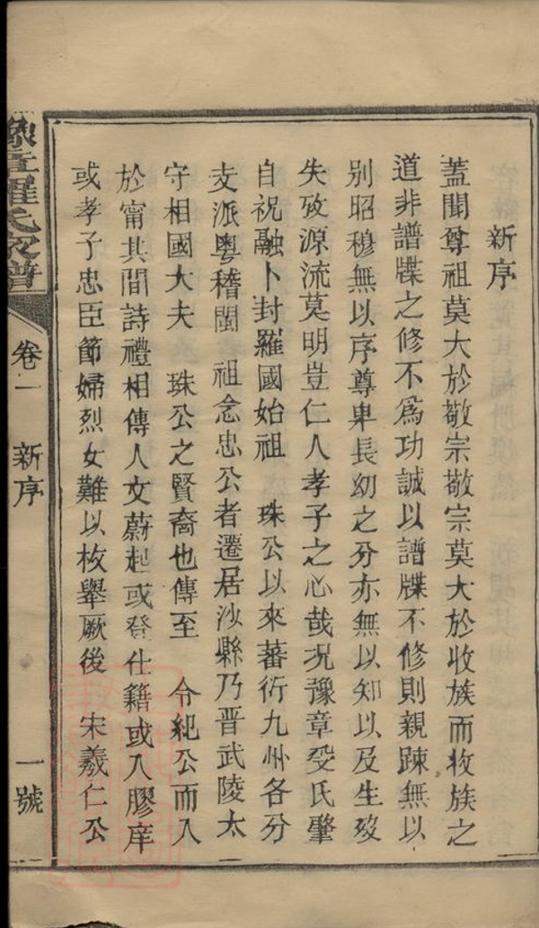 新序
蓋聞尊祖莫大於敬宗敬宗莫大於收族而收族之
道非譜牒之修不爲功誠以譜牒不修則親踈無以
別昭穆無以序尊卑長幼之分亦無以知以及生歿
失攷源流莫明豈仁人孝子之心哉况豫章受氏肇
自祝融卜封羅國始祖 珠公以來蕃衍九州各分
支派粵稽閩 祖念忠公者遷居沙縣乃晋武陵太
守相國大夫 珠公之賢裔也傳至 令紀公而入
於甯其間詩禮相傳人文蔚起或登仕籍或入膠庠
或孝子忠臣節婦烈女難以枚舉厥後 宋羲仁公
豫章羅氏家譜 卷一 新序 一號